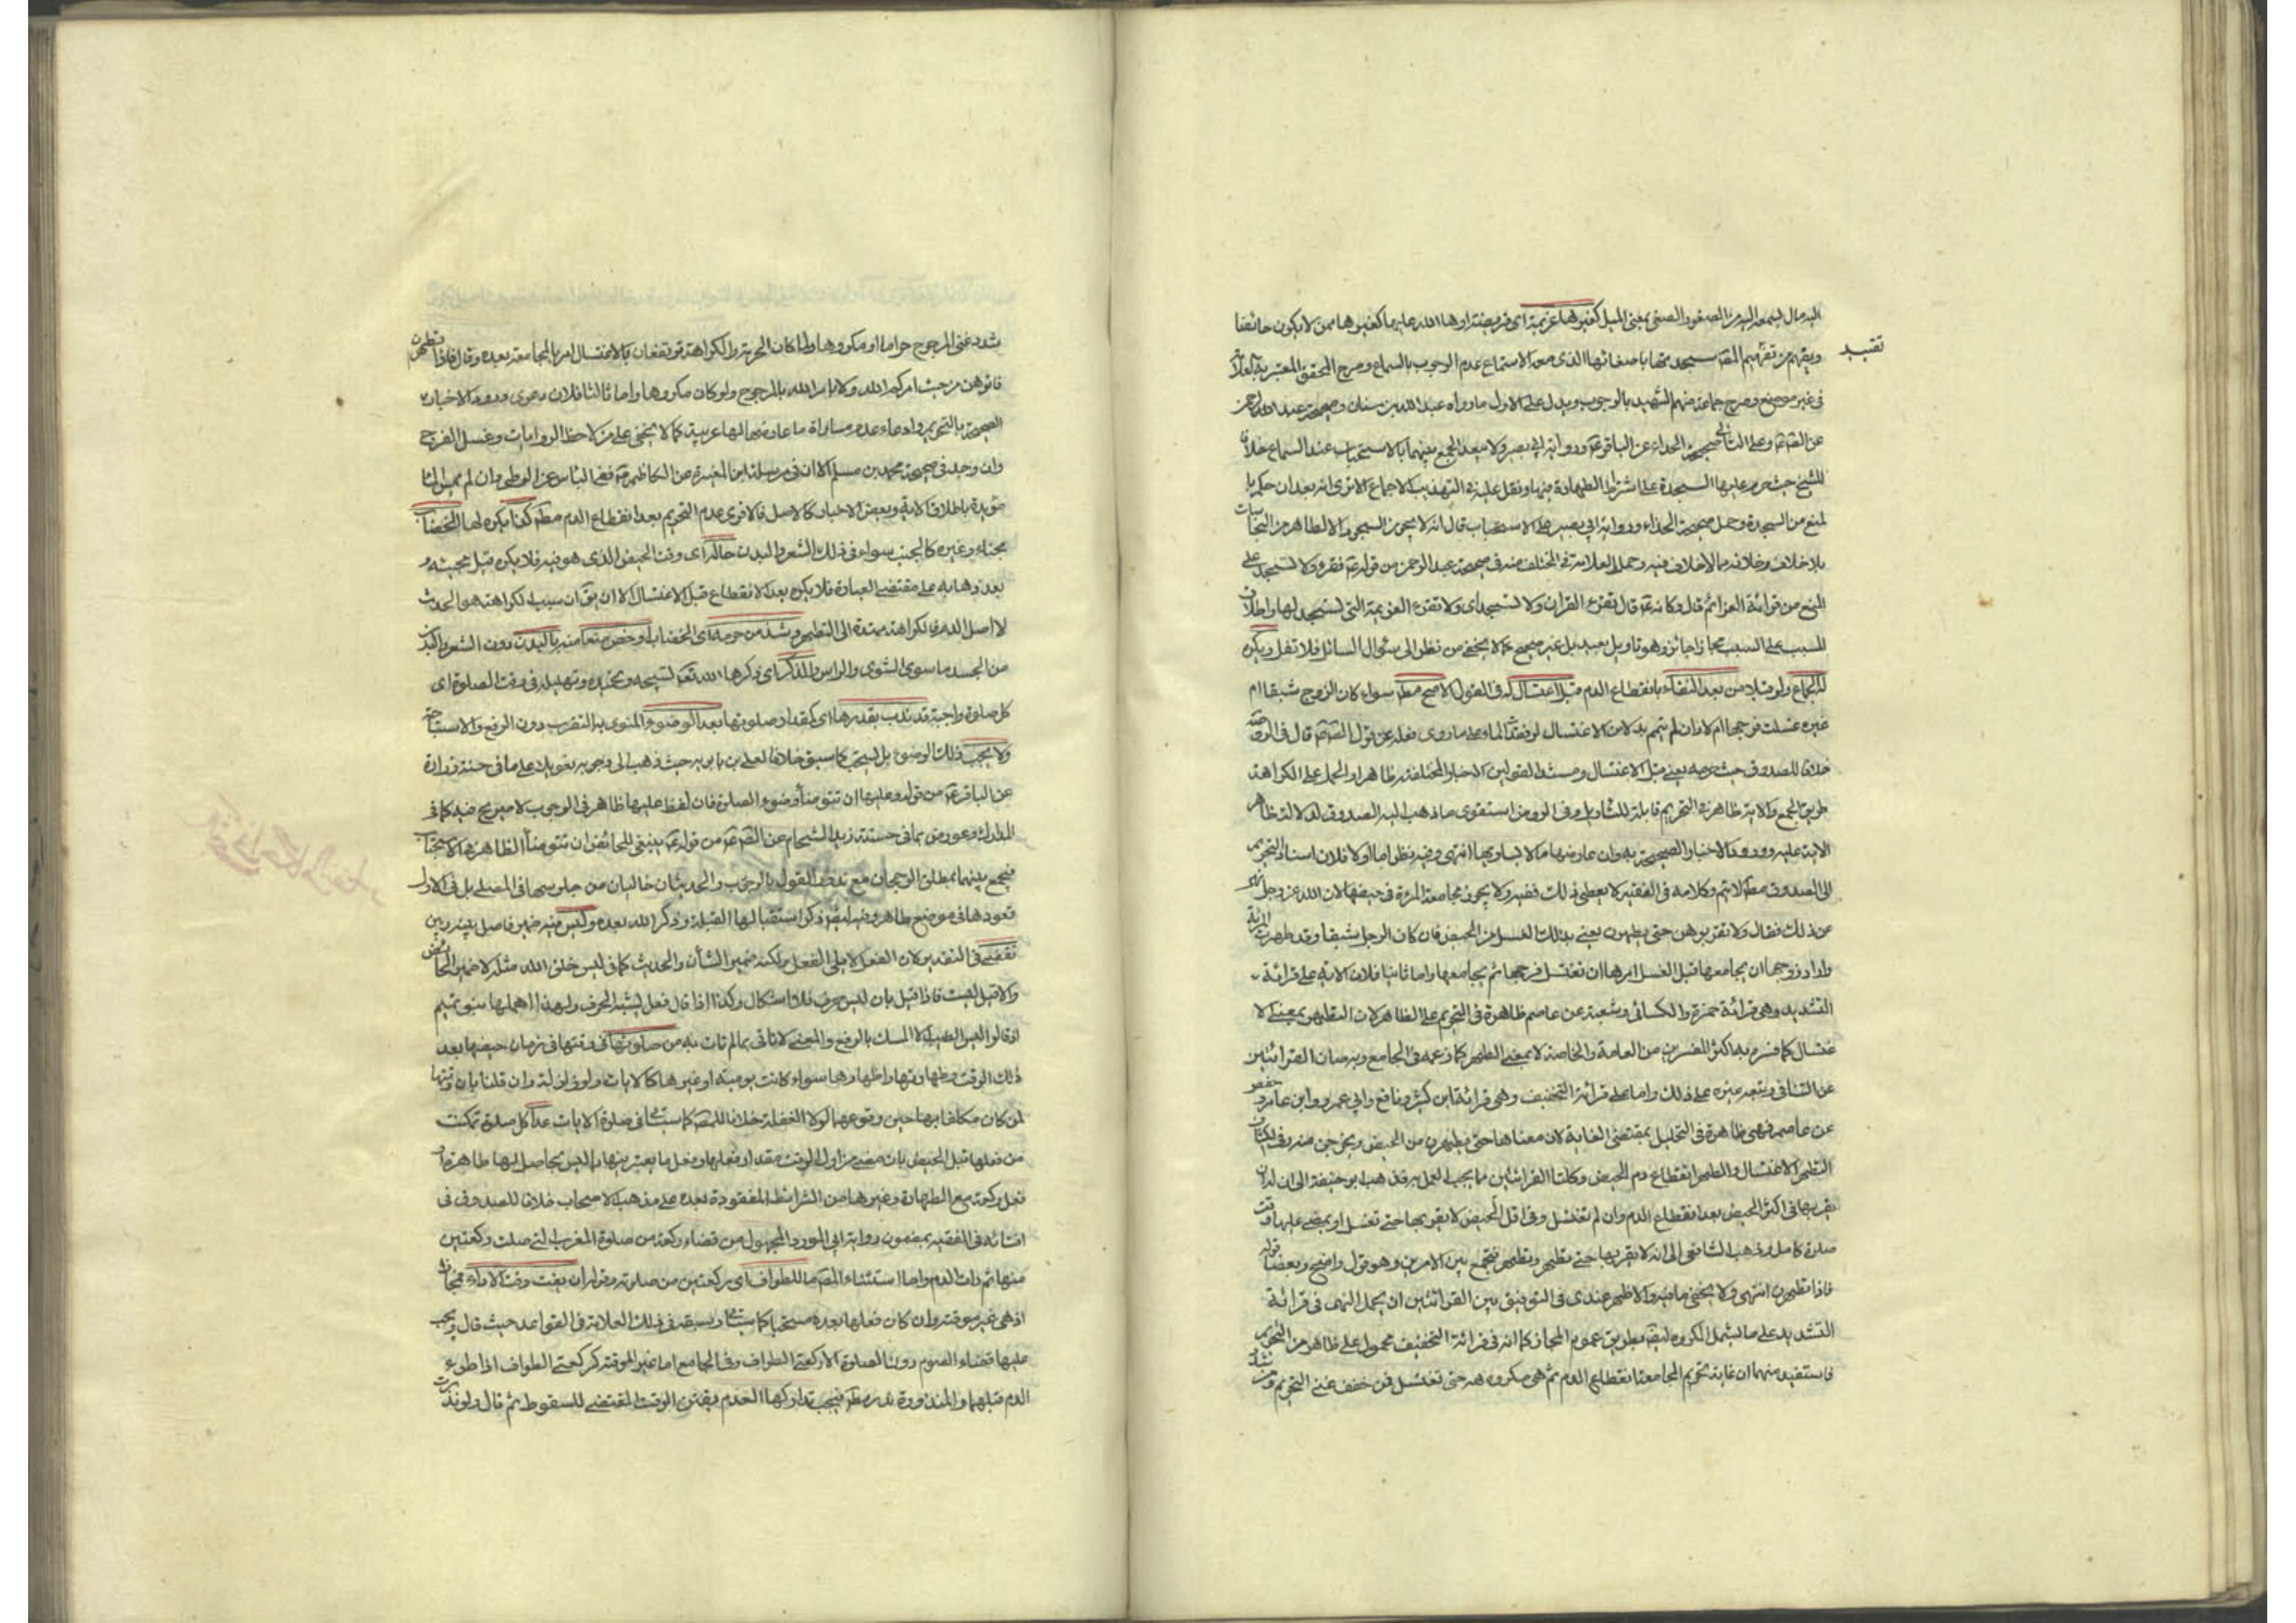 اليه مال لسمعه اليه من الصغو والصغى بمعنى الميل كغيرها عزيمة اى فريضة ارادها الله عليها كغيرها ممن لا يكون حائضا
تقييد
ويفهم من تفهيم المص سجدتها باصغائها الذى معه الاستماع عدم الوجوب بالسماع وصرح المحقق المعتبر
فى غير موضع وصرح جماعة منهم الشهيد بالوجوب ويدل على الاول ما رواه عبد الله بن سنان وصحيحة عبد الرحمن
عن الصم وعلى الثانى صحيحة الحذاء عن الباقر ع ورواية ابى بصير ولا يبعد الجمع بينهما بالاستحباب عند السماع خلافا
للشيخ حيث حرم عليها السجدة على اشتراط الطهارة فيها ونقل عليه فى التهذيب الاجماع الا ترى انه بعد ان حكم با
لمنع من السجدة وحمل صحيحة الحذاء ورواية ابى بصير على الاستحباب قال انه لا يجوز السجود الا لطاهر من النجاسات
بلا خلاف وخلافه مما لا خلاف فيه وحمل العلامة فى المختلف منه فى صحيحة عبد الرحمن من قوله ع تقرء ولا تسجد على
المنع من قرائة العزائم قال وكانه ع قال تقرء القران ولا تسجد اى ولا تقرء العزيمة التى تسجد لها واطلاق
المسبب على السبب مجازا جائز وهو تاويل بعيد بل غير صحيح كما لا يخفى من نظر الى سئوال السائل فلا تغفل ويكره
لها الجماع ولو قبلا من بعد النقاء بانقطاع الدم قبل اغتسال له فى القول الاصح مط سواء كان الزوج شبقا ام
غيره غسلت فرجها ام لا وان لم تيمم بدلا من الاغتسال لو فقدت الماء على ما روى فعله عن قول الصم قال فى الروضة
خلافا للصدوق حيث حرمه يعنى قبل الاغتسال ومستند القولين الاخبار المختلفة ظاهرا والحمل على الكراهة
طريق الجمع والاية ظاهرة فى التحريم قابلة للتاويل وفى الروض استقوى ما ذهب اليه الصدوق لدلالة ظاهر
الاية عليه وورود الاخبار الصحيحة به وان عارضها ما لا يساويها انتهى وفيه نظر اما اولا فلان اسناد التحريم
الى الصدوق مط لا يتم وكلامه فى الفقيه لا يعطى ذلك ففيه ولا يجوز مجامعة المرئة فى حيضها لان الله عز وجل نهى
عن ذلك فقال ولا تقربوهن حتى يطهرن يعنى بذلك الغسل من الحيض فان كان الرجل شبقا وقد طهرت المرئة
واراد زوجها ان يجامعها قبل الغسل امرها ان تغتسل فرجها ثم يجامعها واما ثانيا فلان الاية على قرائة
التشديد وهى قرائة حمزة والكسائى وشعبة عن عاصم ظاهرة فى التحريم على الظاهر لان التطهر بمعنى الا
غتسال كما فسره به اكثر المفسرين من العامة والخاصة لا بمعنى الطهر كما زعمه فى الجامع وبرهان القرائتين
عن الشافى وتبعه غيره على ذلك واما على قرائة التخفيف وهى قرائة ابن كثير ونافع وابى عمرو وابن عامر وحفص
عن عاصم فهى ظاهرة فى التحليل بمقتضى الغاية لان معناها حتى يطهرن من الحيض ويخرجن منه وفى الكشاف
التطهر الاغتسال والطهر انقطاع دم الحيض وكلتا القرائتين مما يجب العمل به فذهب ابو حنيفة الى ان له ان
يقربها فى اكثر الحيض بعد انقطاع الدم وان لم تغتسل وفى اقل الحيض لا يقربها حتى تغتسل او يمضى عليها وقت
صلوة كامل وذهب الشافعى الى انه لا يقربها حتى تطهر وتطهر فتجمع بين الامرين وهو قول واضح ويعضده قوله
فاذا تطهرن انتهى ولا يخفى ما فيه والاظهر عندى فى التوفيق بين القرائتين ان يحمل النهى فى قرائة
التشديد على ما يشمل المكروه ايضا بطريق عموم المجاز كما انه فى قرائة التخفيف محمول على ظاهره من التحريم
فاستفيد منهما ان غاية تحريم المجامعة انقطاع الدم ثم هى مكروهة حتى تغتسل فمن خفف عنى التحريم ومن شدد
شدد عنى المرجوح حراما او مكروها ولما كان الحرمة والكراهة ترتفعان بالاغتسال امر بالمجامعة بعده وقال فاذا تطهرن
فاتوهن من حيث امركم الله ولا يامر الله بالمرجوح ولو كان مكروها واما ثالثا فلان دعوى ورود الاخبار
الصحيحة بالتحريم وادعاء عدم مساواة ما عارضها لها غريبة كما لا يخفى على من لاحظ الروايات وغسل الفرج
وان وجد فى صحيحة محمد بن مسلم الا ان فى مرسلة ابن المغيرة عن الكاظم ع نفى الباس عن الوطى وان لم يمس الماء
مؤيدة باطلاق الاية وبعض الاخبار كالاصل فالاقوى عدم التحريم بعد انقطاع الدم مط كذا يكره لها الخضاب
بحناء وغيره كالجنب سواء فى ذلك الشعر والبدن حالة اى وقت الحيض الذى هو فيه فلا يكره قبل مجيئه و
بعد ذهابه على مقتضى العبارة فلا يكره بعد الانقطاع قبل الاغتسال الا ان يق ان سبب الكراهة هو الحدث
لا اصل الدم فالكراهة ممتدة الى التطهر وشذ من حرمه اى الخضاب او خص منعا منه بالبدن دون الشعر والبدن
من الجسد ما سوى الشوى والراس والذكر اى ذكرها الله تع لتسبيحه وتحميده وتهليله فى وقت الصلوة اى
كل صلوة واجبة قد ندب بقدرها اى كمقداد صلوتها بعد الوضوء المنوى به التقرب دون الرفع والاستباحة
ولا يجب ذلك الوضوء بل يستحب كما سبق خلافا لعلى بن بابويه حيث ذهب الى وجوبه تعويلا على ما فى حسنة زرارة
عن الباقر ع من قوله وعليها ان تتوضأ وضوء الصلوة فان لفظ عليها ظاهر فى الوجوب لا صريح فيه كما فى
المدارك وعورض بما فى حسنة زيد الشحام عن الصم من قوله ع ينبغى للحائض ان تتوضأ الظاهر فى الاستحباب
فيجمع بينهما بمطلق الرجحان مع ندور القول بالوجوب والحديثان خاليان من جلوسها فى المصلى بل فى الاول
قعودها فى موضع طاهر وفيه ايضا ذكر استقبالها القبلة وذكر الله بعده وليس فيه ضمير فاصل بينه وبين
تقضى فى التقدير لان الفعل لا يلى الفعل ولكنه ضمير الشأن والحديث كما فى ليس خلق الله مثله لا ضمير الحائض
والا قيل ليست فاذا قيل بان ليس حرف فلا اشكال وكذا اذا قال فعل يشبه الحرف ولهذا اهملها بنو تميم
اذ قالوا ليس الطيب الا المسك بالرفع والمعنى لا تاتى بما لم تات به من صلوتها فى وقتها فى زمان حيضها بعد
ذلك الوقت وطهارتها واطهارها سواء كانت يومية او غيرها كالايات ولو فى الزلزلة وان قلنا بان وقتها
لمن كان مكلفا بها حين وقوعها لولا الغفلة خلافا للمص كما سياتى فى صلوة الايات عدا كل صلوة تمكنت
من فعلها قبل الحيض بان مضى من اول الوقت مقدار فعلها وفعل ما يعتبر فيها مما ليس بحاصل لها طاهرة او
فعل ركعة مع الطهارة وغيرها من الشرائط المفقودة بعده على مذهب الاصحاب خلافا للصدوق فى
افتائه فى الفقيه بمضمون رواية ابى الورد المجهول من قضاء ركعة من صلوة المغرب التى صلت ركعتين
منها ثم رات الدم واما استثناء المص ما للطواف اى ركعتين من صلوته
اذ هى غير موقتة وان كان فعلها بعده مستحبا كما سياتى وسبقه فى ذلك العلامة فى القواعد حيث قال ويجب
عليها قضاء الصوم دون الصلوة الا ركعتى الطواف وفى الجامع اما غير الموقتة كركعتى الطواف اذا طرء
الدم قبلهما والمنذورة نذر مط فيجب تداركها لعدم تعين الوقت المقتضى للسقوط ثم قال ولو نذرت